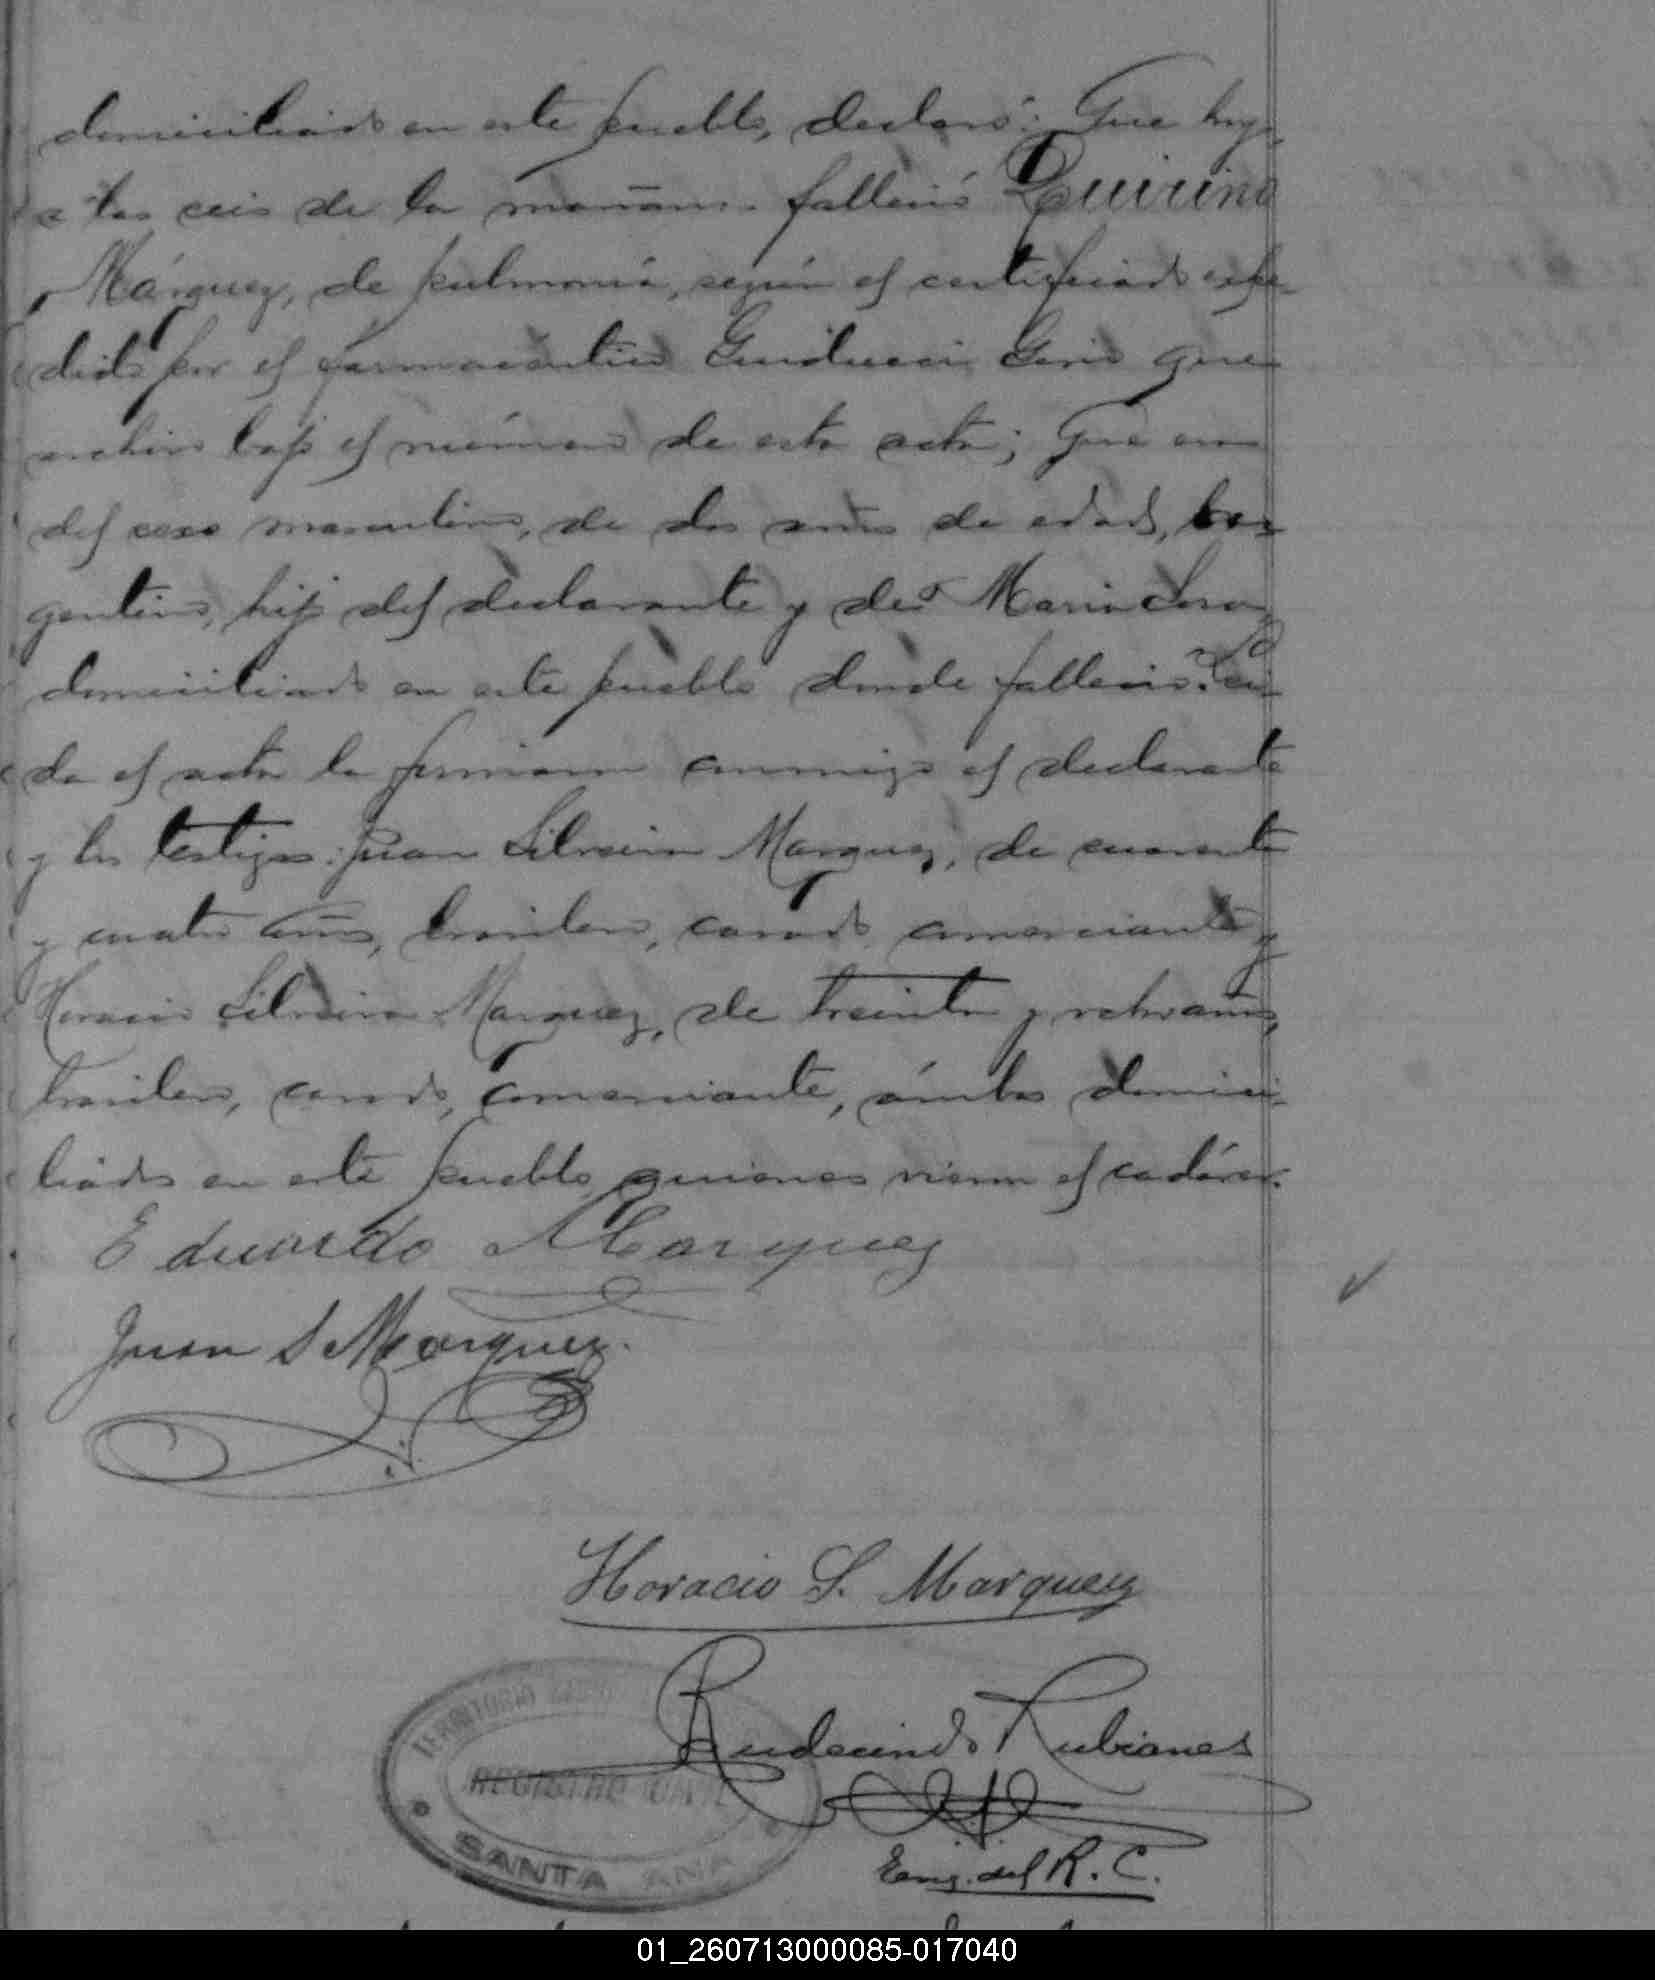 domiciliado en este pueblo, declaró: Que hoy
a las seis de la mañana falleció Quirino
Márquez, de pulmonía, según el certificado espe-
dido por el farmacéutico Genario que
archivo bajo el número de esta acta; Que era
del sexo masculino, de dos años de edad, ar-
gentino, hijo del declarante y de María
domiciliado en este pueblo donde falleció. Leí-
da el acta la firmaron conmigo el declarante
y los testigos: Juan Silveira Marquez, de cuarenta
y cuatro años, brasilero, casado comerciante y
Horacio Silveira Marquez, de treinta y ocho años,
brasilero, casado, comerciante, ámbos domici-
liados en este pueblo quienes vieron el cadáver.
Eduardo Marquez
Juan S Marquez.
Horacio S. Marquez
Rudecindo Rubianes
Enc. del R. C.
TERRITORIO
REGISTRO CIVIL
SANTA ANA
01_260713000085-017040